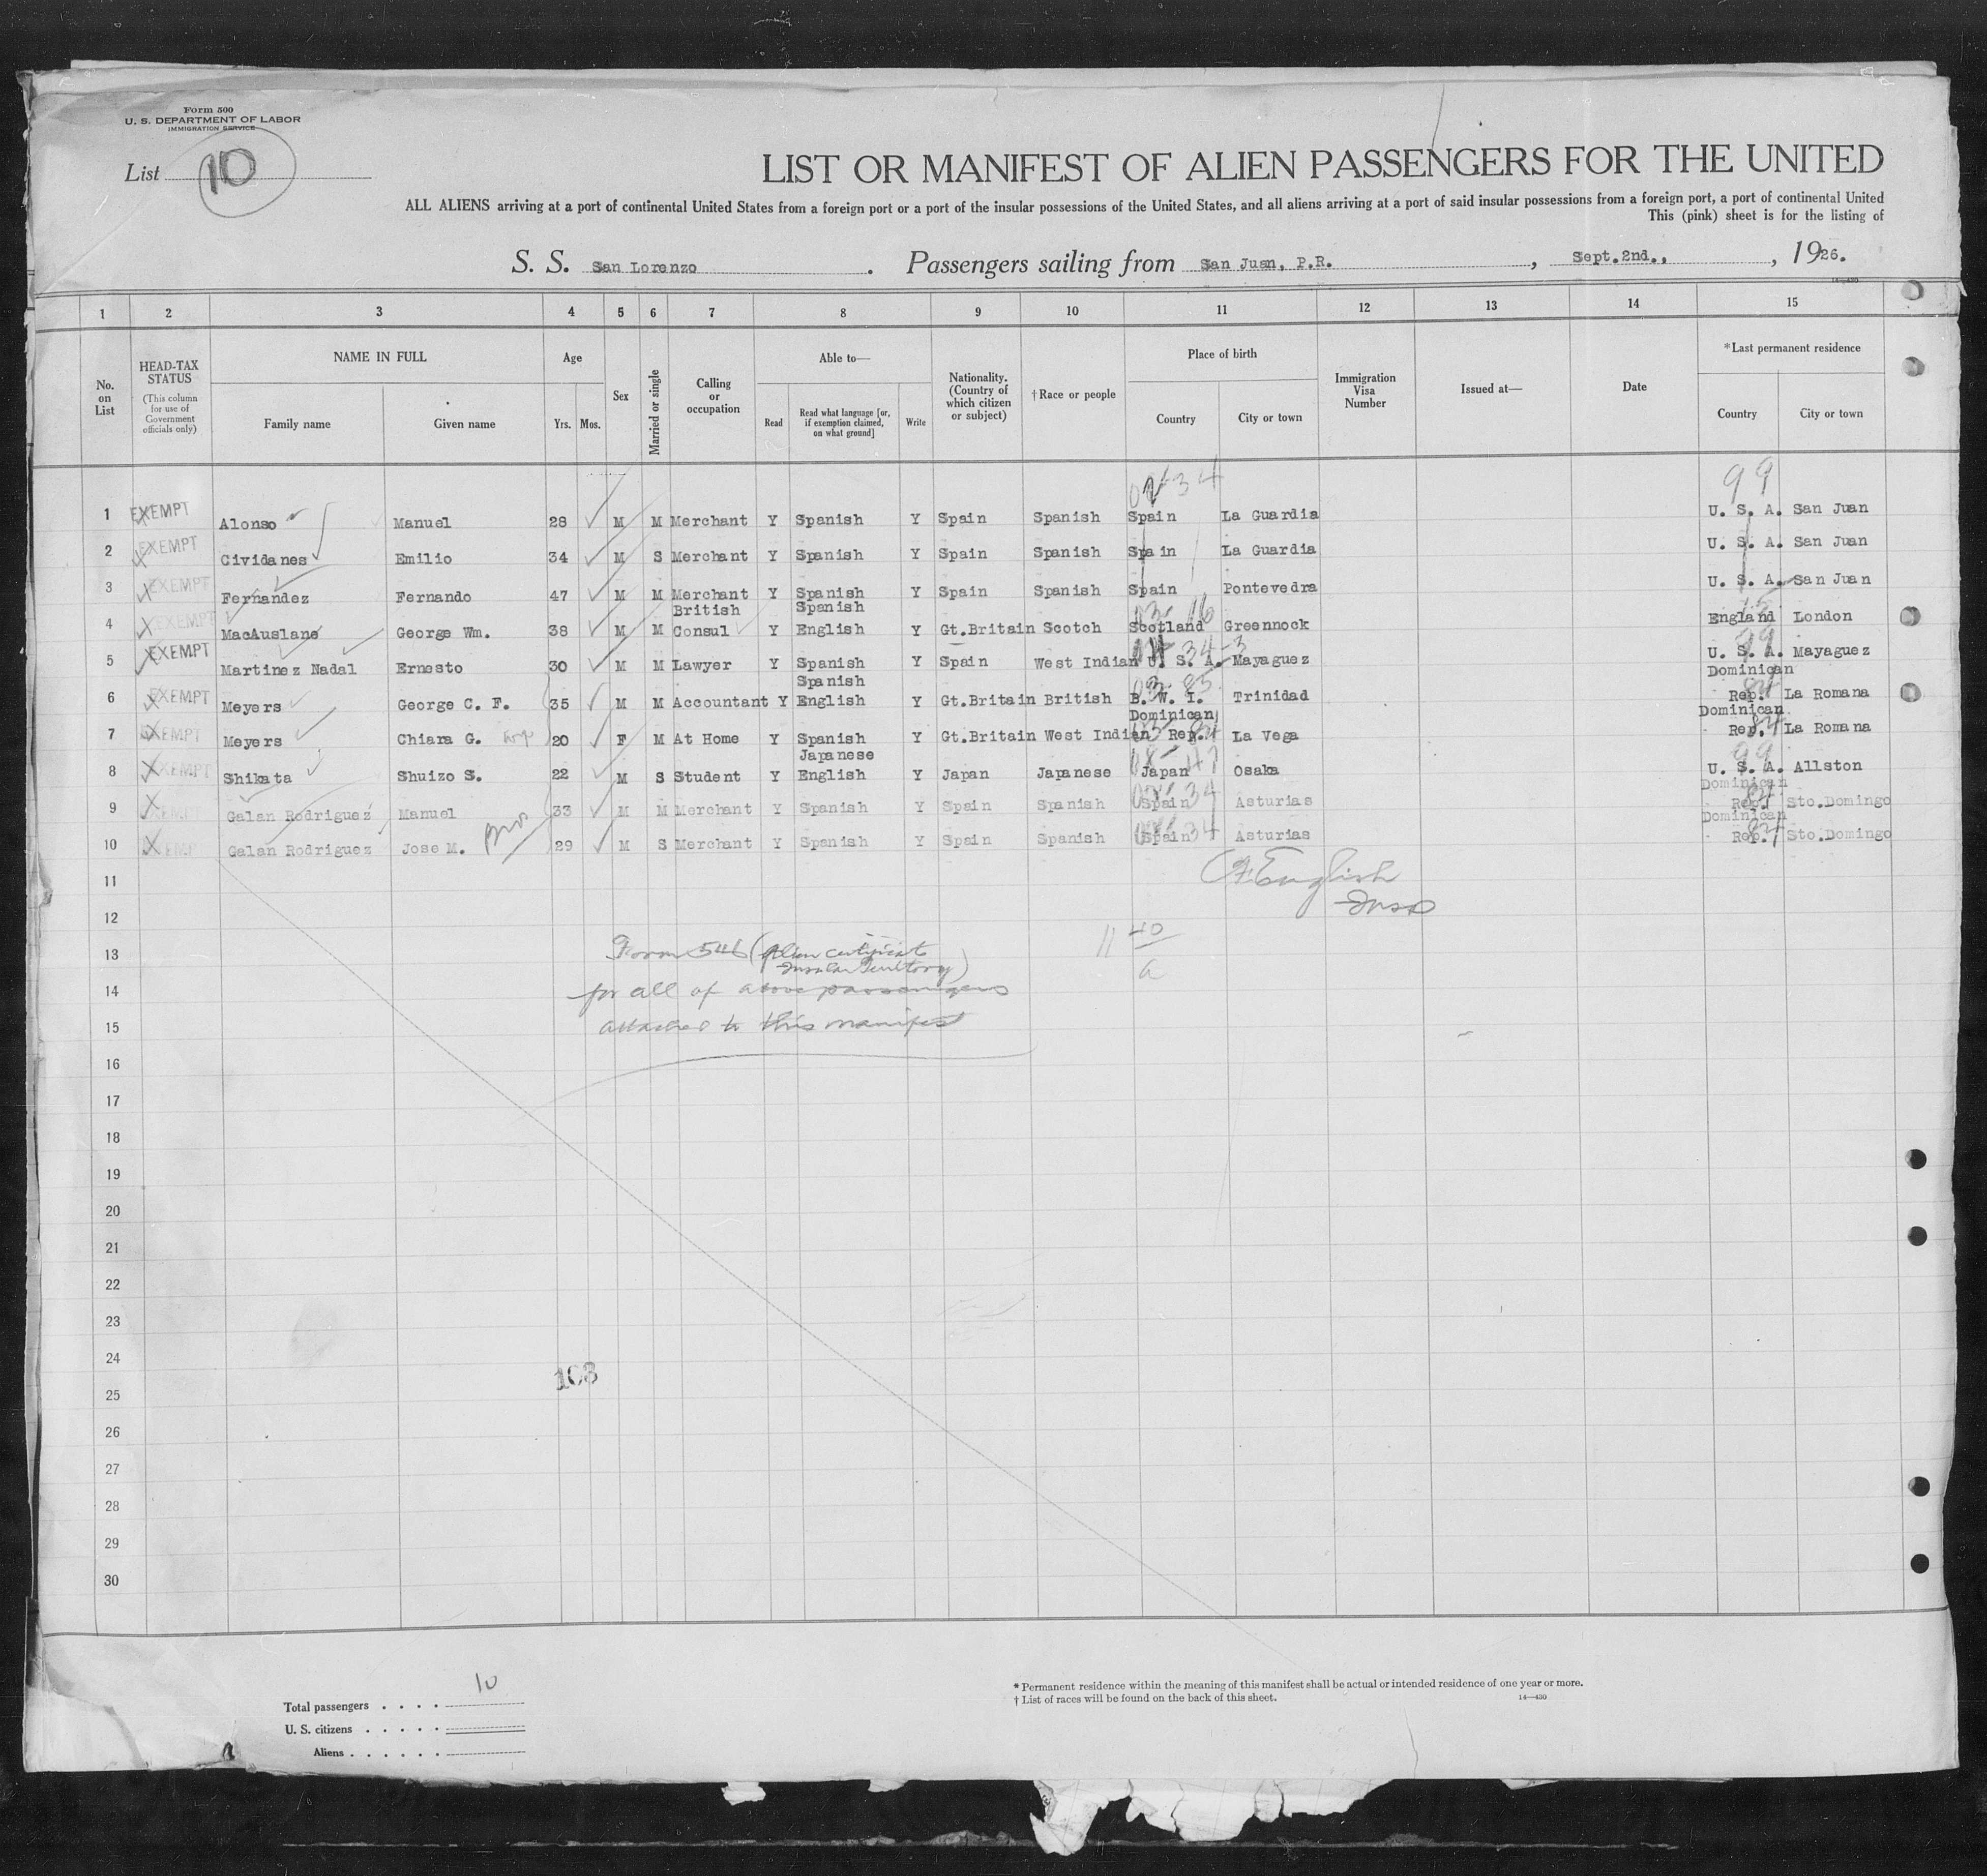 Form 500
U. S. DEPARTMENT OF LABOR
IMMIGRATION SERVICE
List 10
LIST OR MANIFEST OF ALIEN PASSENGERS FOR THE UNITED
ALL ALIENS arriving at a port of continental United States from a foreign port or a port of the insular possessions of the United States, and all aliens arriving at a port of said insular possessions from a foreign port, a port of continental United
This (pink) sheet is for the listing of
S. S. San Lorenzo . Passengers sailing from San Juan, P.R. , Sept.2nd., , 1926.
14—430
1 2 3 4 5 6 7 8 9 10 11 12 13 14 15
No. on List
HEAD-TAX STATUS
(This column for use of Government officials only)
NAME IN FULL
Family name Given name
Age
Yrs. Mos.
Sex
Married or single
Calling or occupation
Able to—
Read Read what language [or, if exemption claimed, on what ground] Write
Nationality. (Country of which citizen or subject)
†Race or people
Place of birth
Country City or town
Immigration Visa Number
Issued at—
Date
*Last permanent residence
Country City or town
02 34 99
1 EXEMPT Alonso Manuel 28 M M Merchant Y Spanish Y Spain Spanish Spain La Guardia U. S. A. San Juan
2 EXEMPT Cividanes Emilio 34 M S Merchant Y Spanish Y Spain Spanish Spain La Guardia U. S. A. San Juan
3 EXEMPT Fernandez Fernando 47 M M Merchant Y Spanish Y Spain Spanish Spain Pontevedra U. S. A. San Juan
4 EXEMPT MacAuslane George Wm. 38 M M British Consul Y Spanish English Y Gt.Britain Scotch Scotland Greennock England London
5 EXEMPT Martinez Nadal Ernesto 30 M M Lawyer Y Spanish Y Spain West Indian U. S. A. Mayaguez U. S. A. Mayaguez
6 EXEMPT Meyers George C. F. 35 M M Accountant Y Spanish English Y Gt.Britain British B. W. I. Trinidad Dominican Rep. La Romana
7 EXEMPT Meyers Chiara G. 20 F M At Home Y Spanish Y Gt.Britain West Indian Dominican Rep. La Vega Dominican Rep. La Romana
8 EXEMPT Shikata Shuizo S. 22 M S Student Y Japanese English Y Japan Japanese Japan Osaka U. S. A. Allston
9 EXEMPT Galan Rodriguez Manuel 33 M M Merchant Y Spanish Y Spain Spanish Spain Asturias Dominican Rep. Sto.Domingo
10 EXEMPT Galan Rodriguez Jose M. 29 M S Merchant Y Spanish Y Spain Spanish Spain Asturias Dominican Rep. Sto.Domingo
11 English
12 Insp
13 Form 546 (Alien certificate
Insular Territory)
14 for all of above passengers
15 attached to this manifest
11 40
a
16
17
18
19
20
21
22
23
24
108
25
26
27
28
29
30
Total passengers . . . . 10
U. S. citizens . . . . .
Aliens . . . . . .
* Permanent residence within the meaning of this manifest shall be actual or intended residence of one year or more.
† List of races will be found on the back of this sheet.
14—430